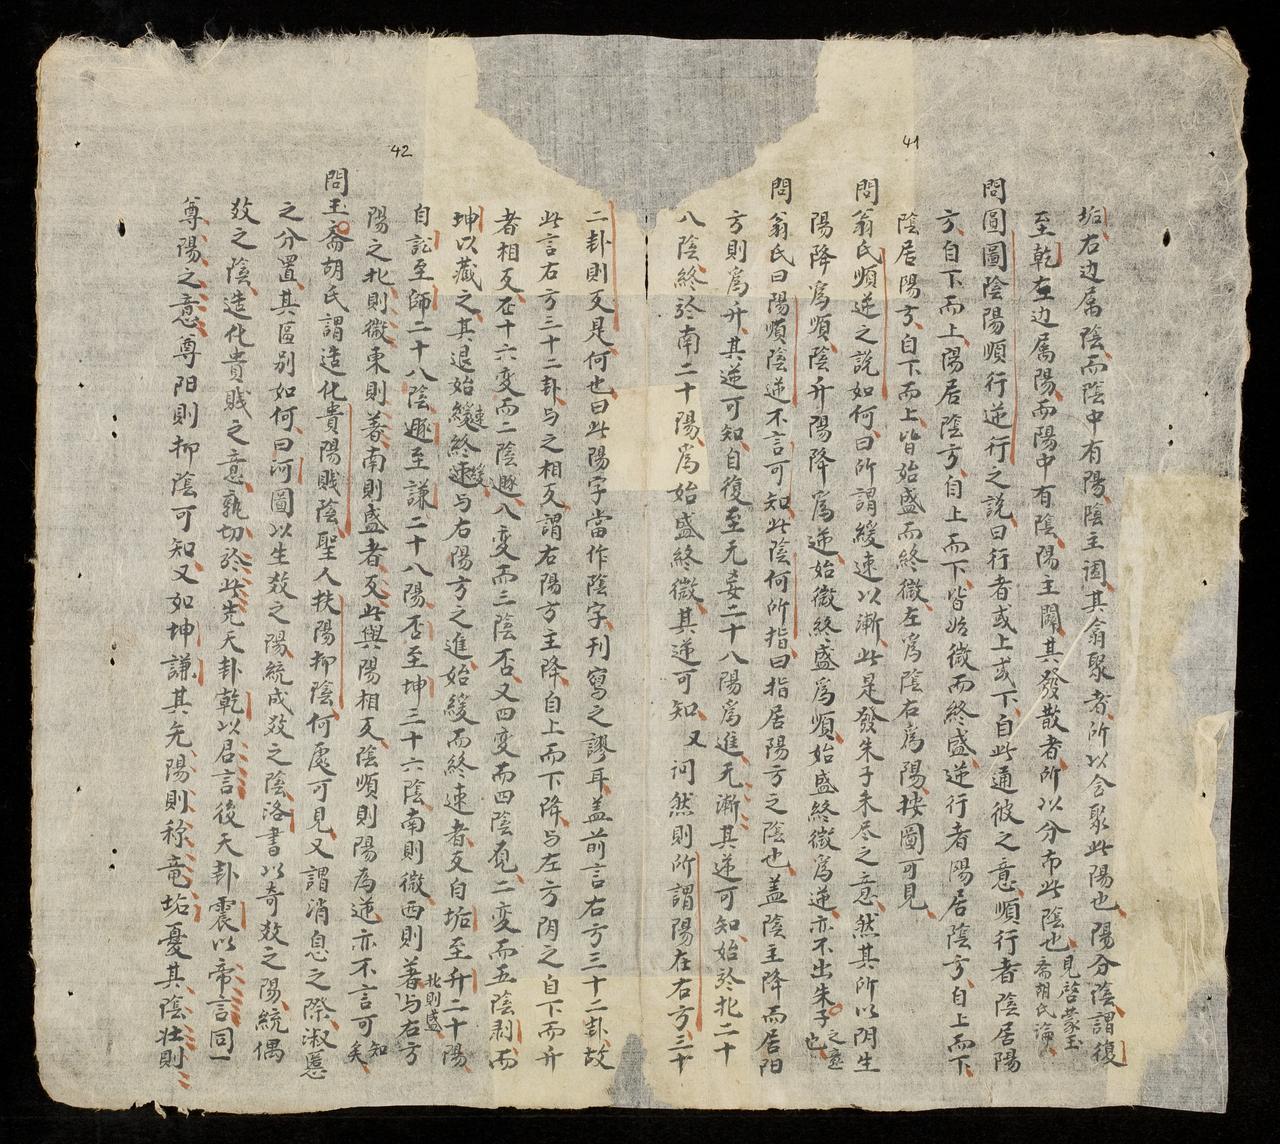 41
姤右边属陰而陰中有陽陰主闔其翕聚者所以含聚此陽也陽分陰謂復
至乾左边属陽而陽中有陰陽主闢其發散者所以分布此陰也見啓蒙玉齋胡氏論
問圓圖陰陽順行逆行之說曰行者或上或下自此通彼之意順行者陰居陽
方自下而上陽居陰方自上而下皆始微而終盛逆行者陽居陰方自上而下
陰居陽方自下而上皆始盛而終微左爲陰右爲陽按圖可見
問翁氏順逆之說如何曰所謂緩速以漸此是發朱子未尽之意然其所以陰生
陽降爲順陰升陽降爲逆始微終盛爲順始盛終微爲逆亦不出朱子之意也
問翁氏曰陽順陰逆不言可知此陰何所指曰指居陽方之陰也盖陰主降而居阳
方則爲升其逆可知自復至无妄二十八陽爲進无漸其逆可知始於北二十
八陰終於南二十陽爲始盛終微其逆可知又问然則所謂陽在右方三十
42
二卦則反是何也曰此陽字當作陰字刊寫之謬耳盖前言右方三十二卦故
此言右方三十二卦与之相反謂右陽方主降自上而下降与左方阴之自下而升
者相反在十六变而二陰遯八变而三陰否又四变而四陰觀二变而五陰剥而
坤以藏之其退始緩速終速緩与右陽方之進始緩而終速者反自姤至升二十陽
自訟至師二十八陰遯至謙二十八陽否至坤三十六陰南則微西則著北則盛与右方
陽之北則微東則著南則盛者反此與陽相反陰順則陽为逆亦不言可知矣
問玉齋胡氏謂造化貴陽賤陰聖人扶陽抑陰何處可見又謂消息之際淑慝
之分置其區别如何曰河圖以生数之陽統成数之陰洛書以奇数之陽統偶
数之陰造化貴賤之意孰切於此先天卦乾以君言後天卦震以帝言同一
尊陽之意尊阳則抑陰可知又如坤謙其先陽則称竜姤憂其陰壮則